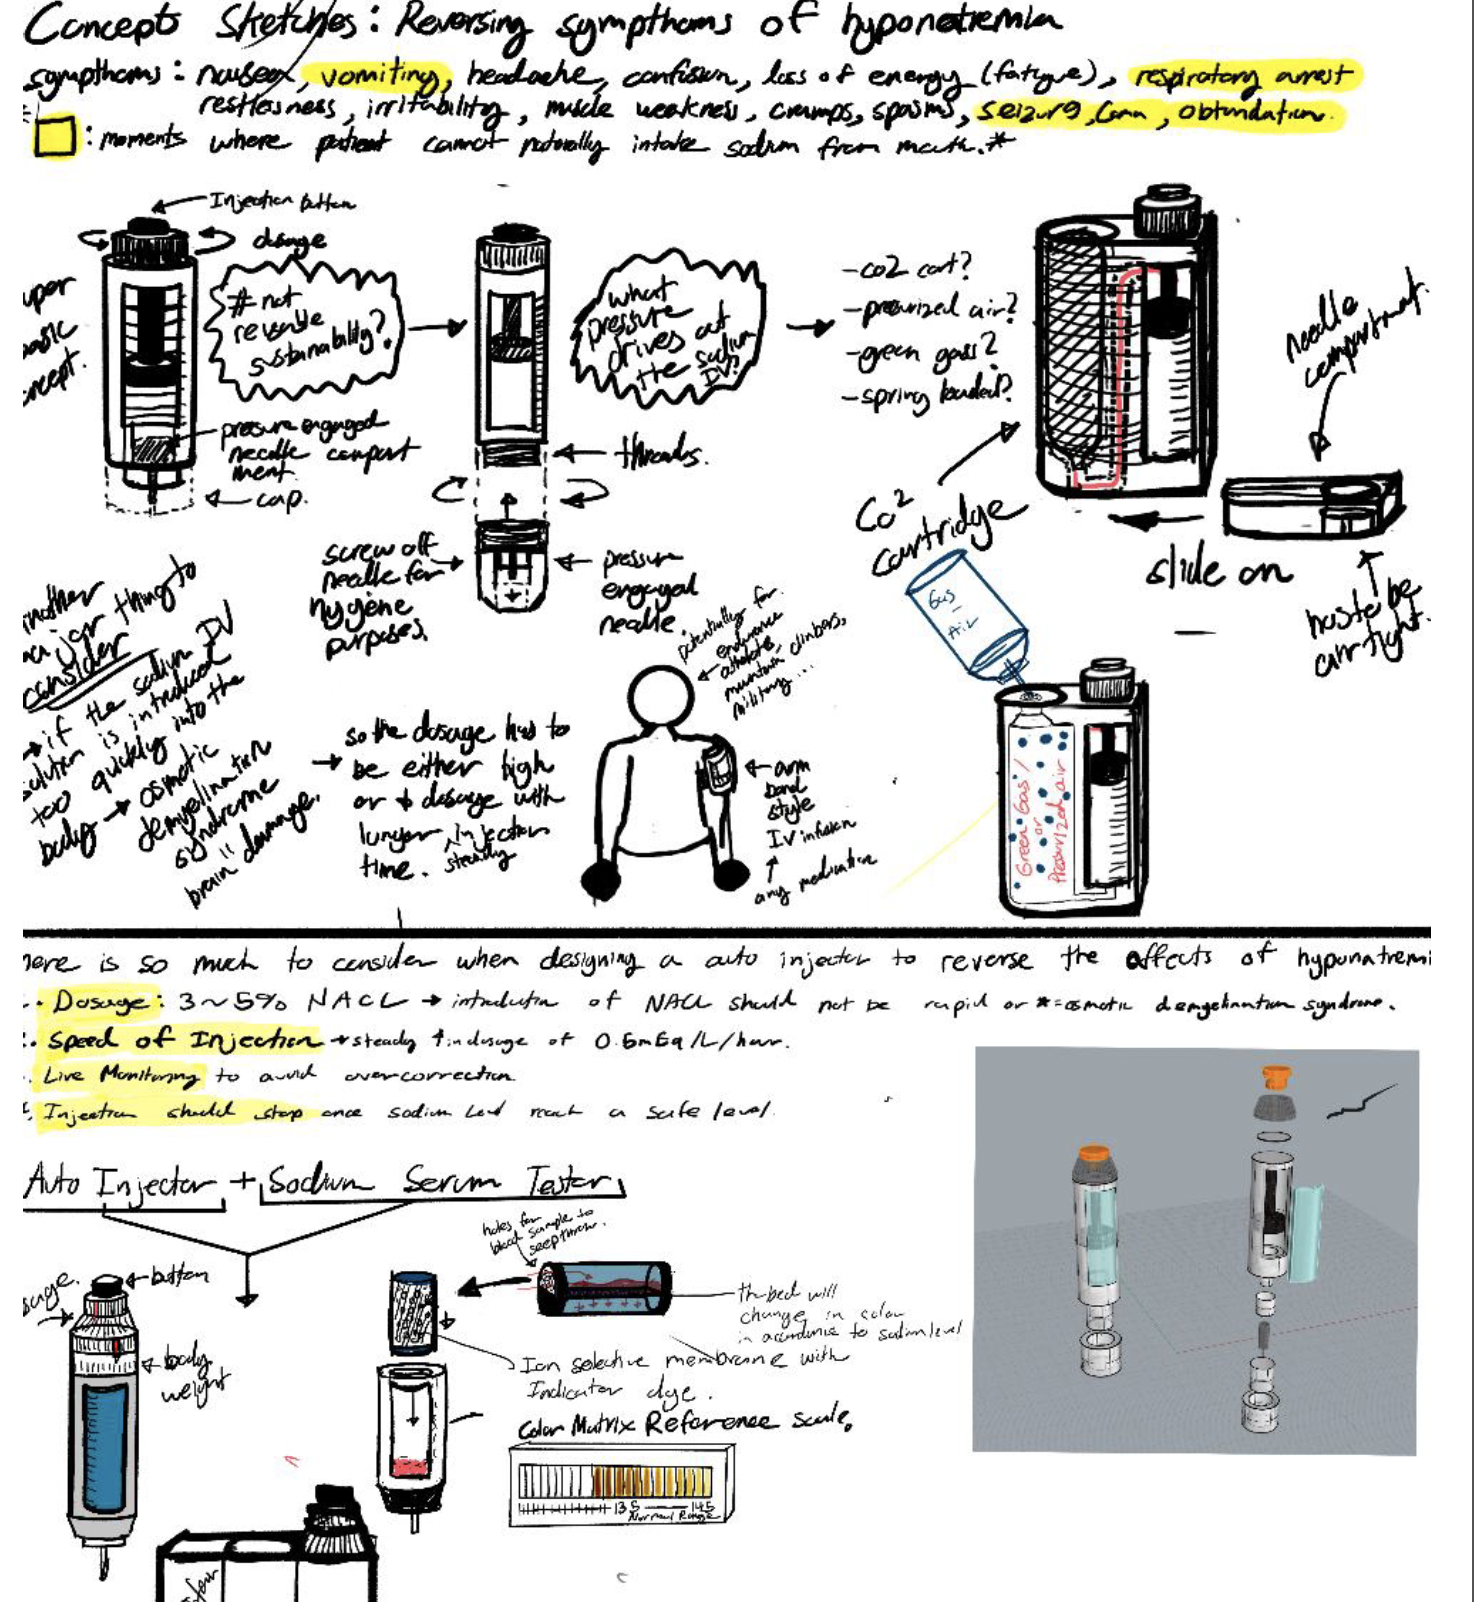 Concept Sketches: Reversing sympthoms of hyponatremia
sympthoms: nausea, vomiting, headache, confision, loss of energy (fatigue), respiratory arrest
restlesness, irritability, muscle weakness, cramps, spasms, seizure, Coma, obtundation.
: moments where patient cannot naturally intake sodium from mouth.*
Injection button
dosage
# not
reusable
sustainability?
pressure engaged
needle compart
ment.
cap.
what
pressure
drives out
the sodium
IV?
threads.
screw off
needle for
hygene
purposes.
pressure
engaged
needle
-co2 cart?
-pressurized air?
-green gass?
-spring loaded?
Co2
cartridge
needle
compartment.
slide on
has to be
air tight.
Gas
-
Air
Green Gas /
or
Pressurized air
consider
if the sodium IV
solution is introduced
too quickly into the
body → osmotic
demyelination
syndrome
brain damage.
→ so the dosage has to
be either high
or dosage with
longer injection
time. steady
potentially for
endurance
athletes,
mountain climbers,
military...
arm
band
style
IV infusion
any medication
here is so much to consider when designing a auto injector to reverse the affects of hyponatremi
Dosage: 3~5% NACL → introduction of NACL should not be rapid or *=osmotic demyelination syndrome.
Speed of Injection → steady in dosage of 0.5mEq/L/hour.
Live Monitoring to avoid overcorrection
Injection should stop once sodium level reach a safe level.
Auto Injector + Sodium Serum Tester
button
body
weight
holes for
blood sample to
seep throu.
th bed will
change in color
in accordance to sodium level
Ion selective membrane with
Indicator dye.
Color Matrix Reference Scale.
135 — 145
Normal Range